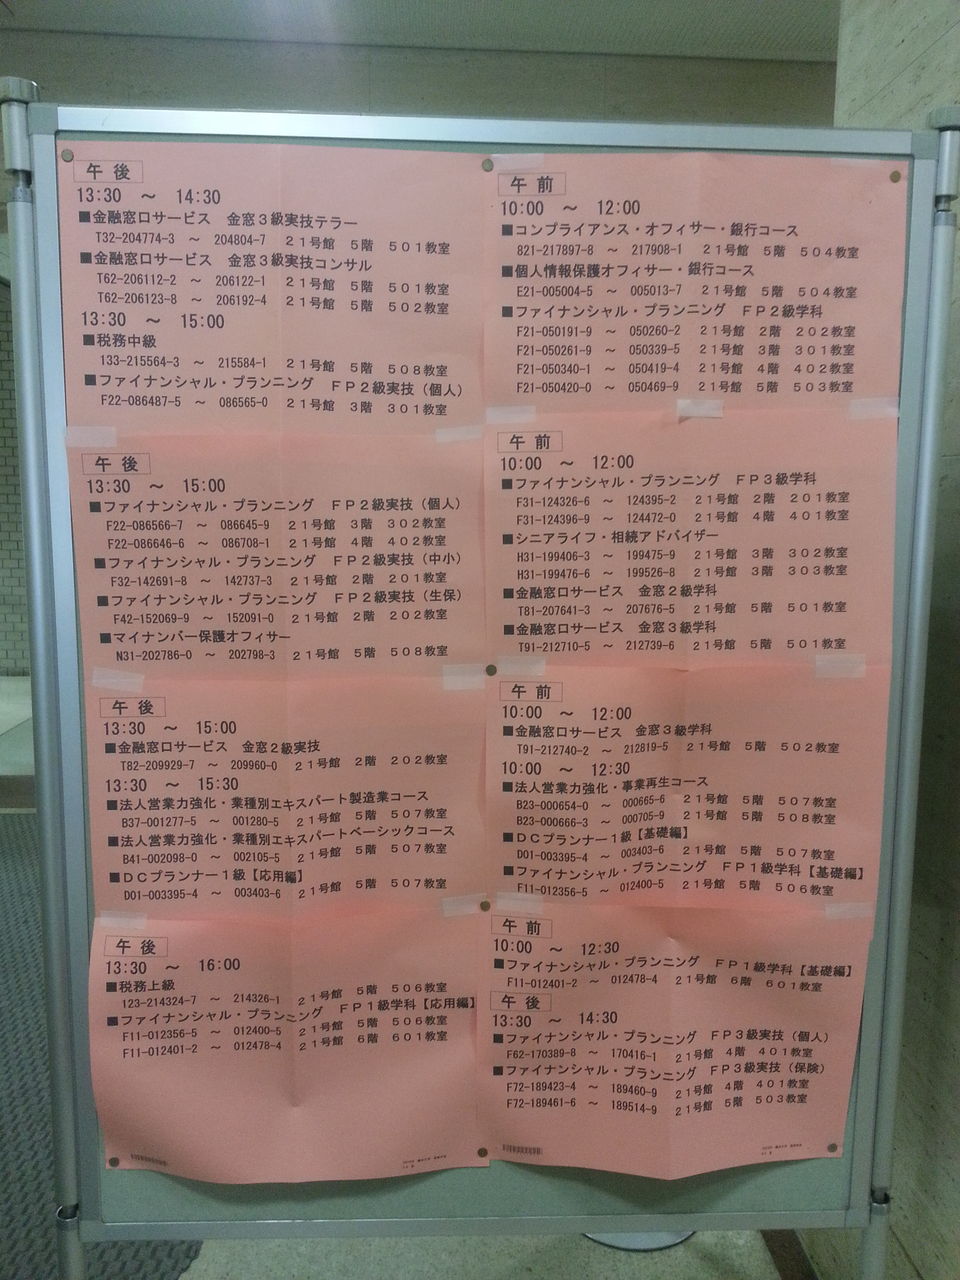 午後
13:30 ～ 14:30
■金融窓口サービス 金窓３級実技テラー
T32-204774-3 ～ 204804-7 ２１号館 ５階 ５０１教室
■金融窓口サービス 金窓３級実技コンサル
T62-206112-2 ～ 206122-1 ２１号館 ５階 ５０１教室
T62-206123-8 ～ 206192-4 ２１号館 ５階 ５０２教室
13:30 ～ 15:00
■税務中級
133-215564-3 ～ 215584-1 ２１号館 ５階 ５０８教室
■ファイナンシャル・プランニング ＦＰ２級実技（個人）
F22-086487-5 ～ 086565-0 ２１号館 ３階 ３０１教室
午後
13:30 ～ 15:00
■ファイナンシャル・プランニング ＦＰ２級実技（個人）
F22-086566-7 ～ 086645-9 ２１号館 ３階 ３０２教室
F22-086646-6 ～ 086708-1 ２１号館 ４階 ４０２教室
■ファイナンシャル・プランニング ＦＰ２級実技（中小）
F32-142691-8 ～ 142737-3 ２１号館 ２階 ２０１教室
■ファイナンシャル・プランニング ＦＰ２級実技（生保）
F42-152069-9 ～ 152091-0 ２１号館 ２階 ２０２教室
■マイナンバー保護オフィサー
N31-202786-0 ～ 202798-3 ２１号館 ５階 ５０８教室
午後
13:30 ～ 15:00
■金融窓口サービス 金窓２級実技
T82-209929-7 ～ 209960-0 ２１号館 ２階 ２０２教室
13:30 ～ 15:30
■法人営業力強化・業種別エキスパート製造業コース
B37-001277-5 ～ 001280-5 ２１号館 ５階 ５０７教室
■法人営業力強化・業種別エキスパートベーシックコース
B41-002098-0 ～ 002105-5 ２１号館 ５階 ５０７教室
■ＤＣプランナー１級【応用編】
D01-003395-4 ～ 003403-6 ２１号館 ５階 ５０７教室
午後
13:30 ～ 16:00
■税務上級
123-214324-7 ～ 214326-1 ２１号館 ５階 ５０６教室
■ファイナンシャル・プランニング ＦＰ１級学科【応用編】
F11-012356-5 ～ 012400-5 ２１号館 ５階 ５０６教室
F11-012401-2 ～ 012478-4 ２１号館 ６階 ６０１教室
午前
10:00 ～ 12:00
■コンプライアンス・オフィサー・銀行コース
821-217897-8 ～ 217908-1 ２１号館 ５階 ５０４教室
■個人情報保護オフィサー・銀行コース
E21-005004-5 ～ 005013-7 ２１号館 ５階 ５０４教室
■ファイナンシャル・プランニング ＦＰ２級学科
F21-050191-9 ～ 050260-2 ２１号館 ２階 ２０２教室
F21-050261-9 ～ 050339-5 ２１号館 ３階 ３０１教室
F21-050340-1 ～ 050419-4 ２１号館 ４階 ４０２教室
F21-050420-0 ～ 050469-9 ２１号館 ５階 ５０３教室
午前
10:00 ～ 12:00
■ファイナンシャル・プランニング ＦＰ３級学科
F31-124326-6 ～ 124395-2 ２１号館 ２階 ２０１教室
F31-124396-9 ～ 124472-0 ２１号館 ４階 ４０１教室
■シニアライフ・相続アドバイザー
H31-199406-3 ～ 199475-9 ２１号館 ３階 ３０２教室
H31-199476-6 ～ 199526-8 ２１号館 ３階 ３０３教室
■金融窓口サービス 金窓２級学科
T81-207641-3 ～ 207676-5 ２１号館 ５階 ５０１教室
■金融窓口サービス 金窓３級学科
T91-212710-5 ～ 212739-6 ２１号館 ５階 ５０１教室
午前
10:00 ～ 12:00
■金融窓口サービス 金窓３級学科
T91-212740-2 ～ 212819-5 ２１号館 ５階 ５０２教室
10:00 ～ 12:30
■法人営業力強化・事業再生コース
B23-000654-0 ～ 000665-6 ２１号館 ５階 ５０７教室
B23-000666-3 ～ 000705-9 ２１号館 ５階 ５０８教室
■ＤＣプランナー１級【基礎編】
D01-003395-4 ～ 003403-6 ２１号館 ５階 ５０７教室
■ファイナンシャル・プランニング ＦＰ１級学科【基礎編】
F11-012356-5 ～ 012400-5 ２１号館 ５階 ５０６教室
午前
10:00 ～ 12:30
■ファイナンシャル・プランニング ＦＰ１級学科【基礎編】
F11-012401-2 ～ 012478-4 ２１号館 ６階 ６０１教室
午後
13:30 ～ 14:30
■ファイナンシャル・プランニング ＦＰ３級実技（個人）
F62-170389-8 ～ 170416-1 ２１号館 ４階 ４０１教室
■ファイナンシャル・プランニング ＦＰ３級実技（保険）
F72-189423-4 ～ 189460-9 ２１号館 ４階 ４０１教室
F72-189461-6 ～ 189514-9 ２１号館 ５階 ５０３教室